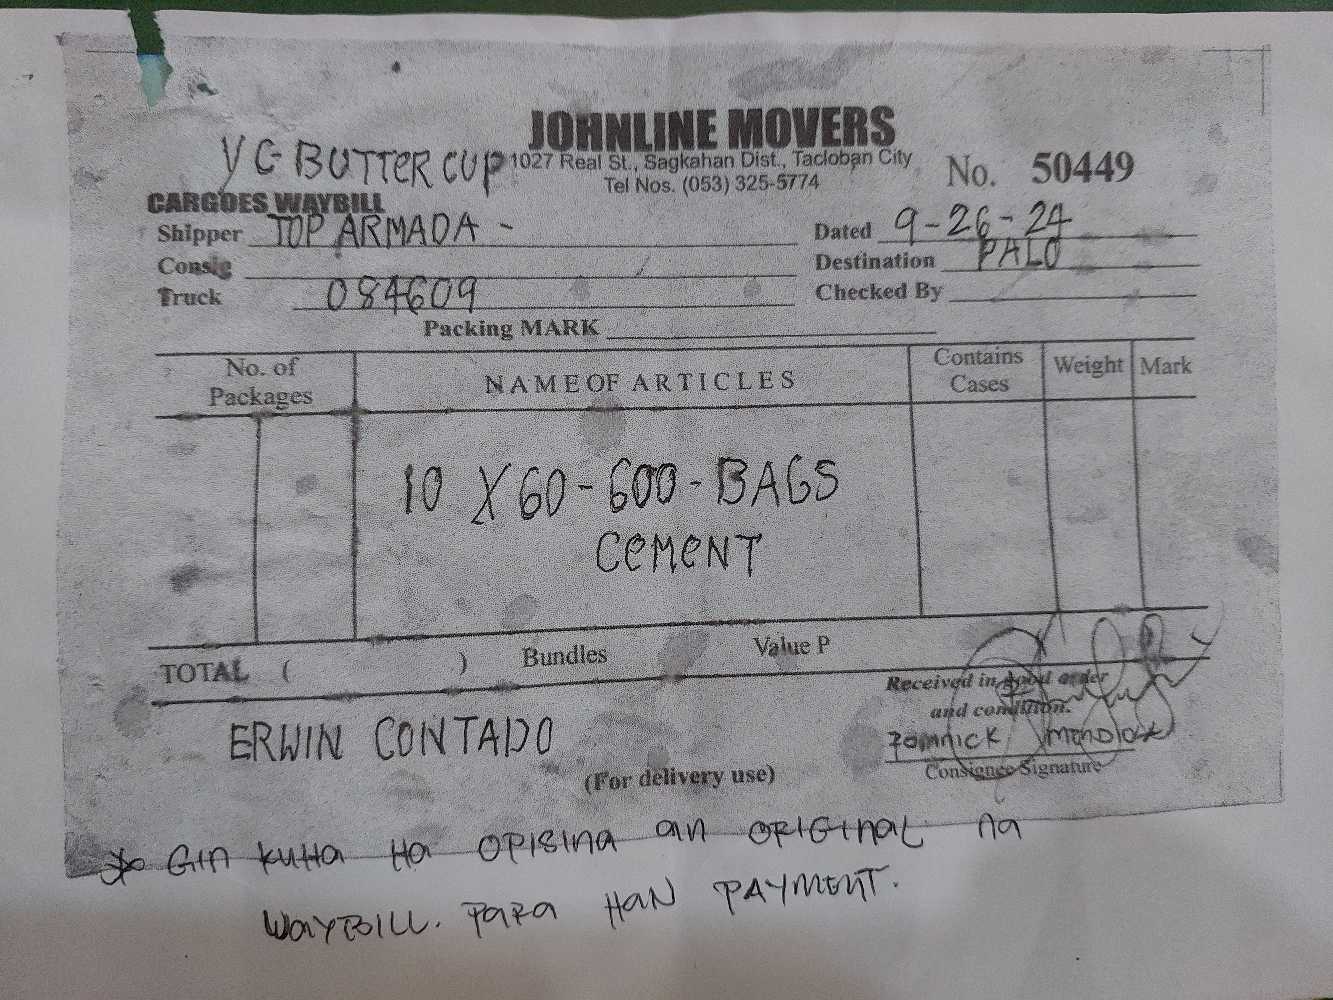 JOHNLINE MOVERS
YC BUTTER CUP
1027 Real St., Sagkahan Dist., Tacloban City
Tel Nos. (053) 325-5774
No. 50449
CARGOES WAYBILL
Shipper TOP ARMADA -
Dated 9-26-24
Consig
Destination PALO
Truck 084609
Checked By
Packing MARK
No. of Packages
NAME OF ARTICLES
Contains Cases
Weight
Mark
10 X 60 - 600 - BAGS
CEMENT
TOTAL ( ) Bundles Value P
Received in good order
and condition.
ERWIN CONTADO
(For delivery use)
Consignee Signature
* GIN KUHA HA OPISINA an ORIGINAL na
WAYBILL. PARA HAN PAYMENT.